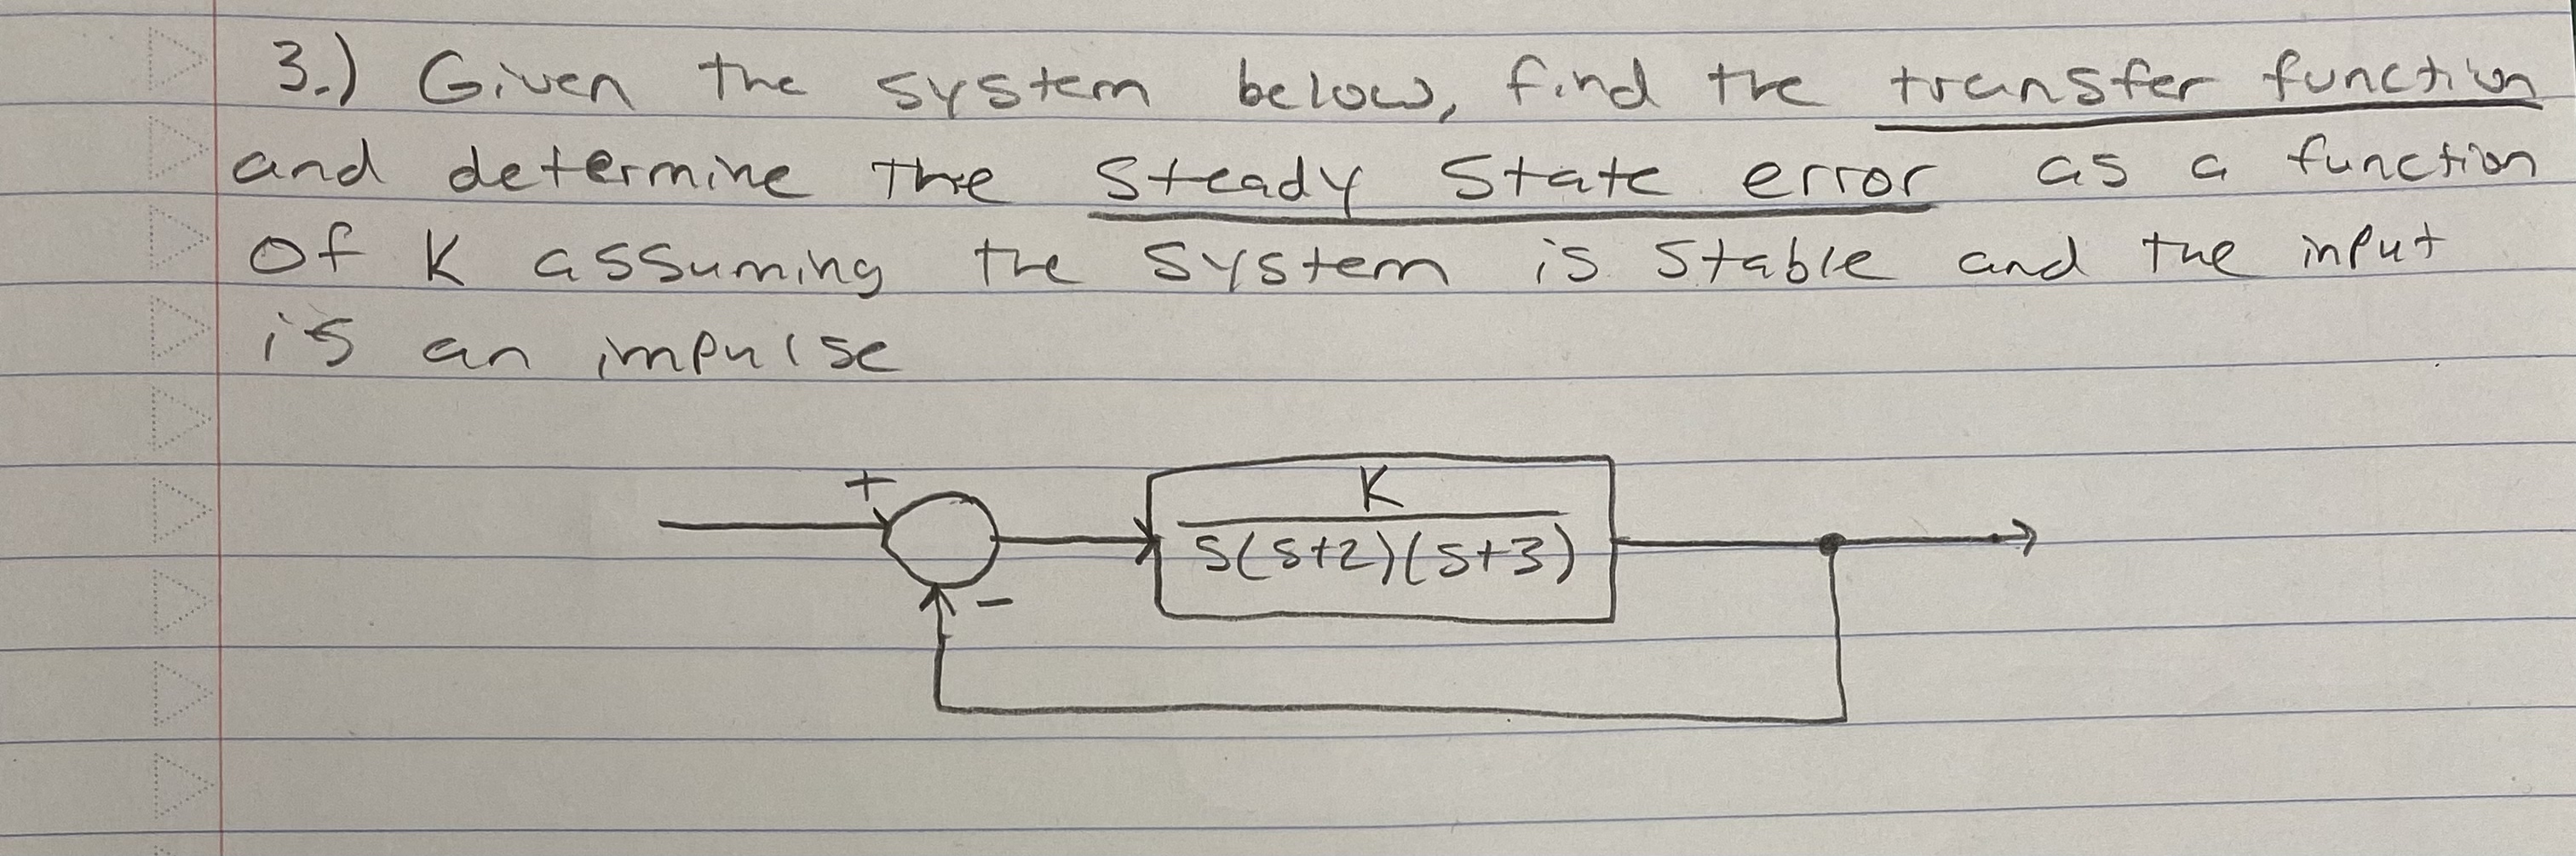 3.) Given the system below, find the transfer function
and determine the steady state error as a function
of K assuming the system is stable and the input
is an impulse
+
K
s(s+2)(s+3)
-